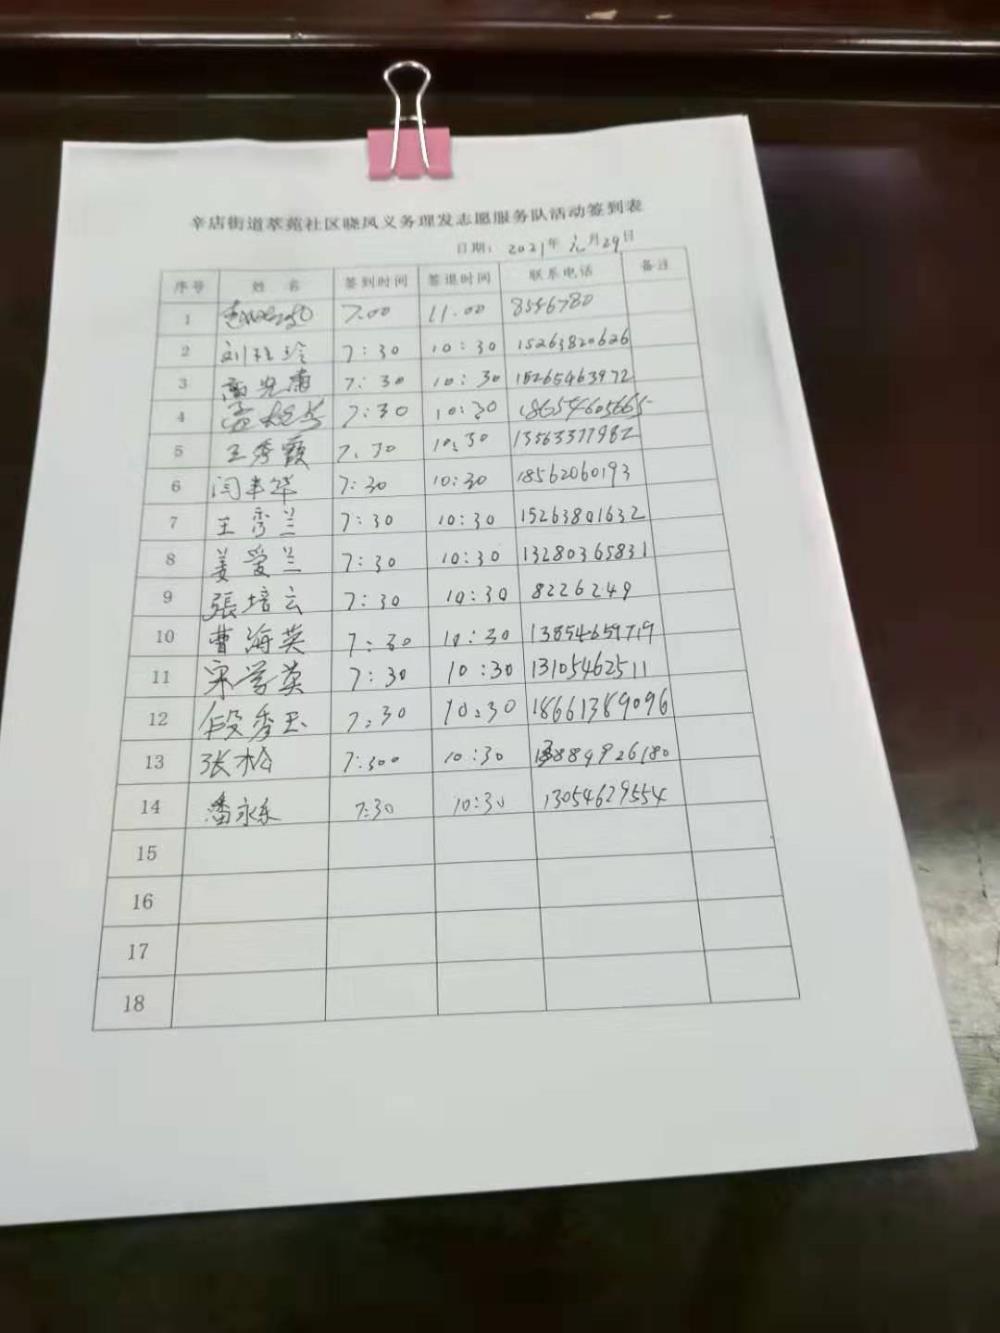 辛店街道萃苑社区晓风义务理发志愿服务队活动签到表
日期： 2021年 元月29日
序号 姓 名 签到时间 签退时间 联系电话 备注
1 7.00 11.00 8546780
2 刘桂玲 7:30 10:30 15263820626
3 7:30 10:30 15265463972
4 7:30 10:30 18654605665
5 王秀霞 7.30 10:30 13563377982
6 闫丰华 7:30 10:30 18562060193
7 王秀兰 7:30 10:30 15263801632
8 姜爱兰 7:30 10:30 13280365831
9 張培云 7:30 10:30 8226249
10 曹海英 7:30 10:30 13854659719
11 宋学英 7:30 10:30 13105462511
12 段秀玉 7:30 10:30 18661389096
13 张松 7:300 10:30
14 潘永乐 7:30 10:30 13054629554
15
16
17
18